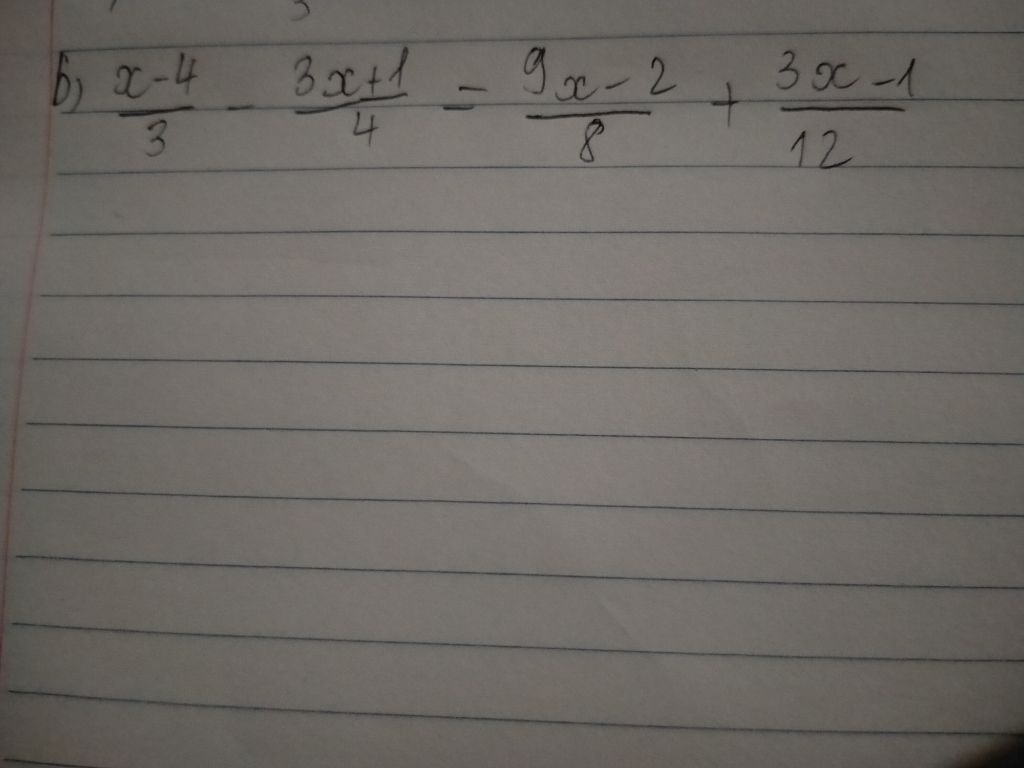 b) \frac{x-4}{3} - \frac{3x+1}{4} = \frac{9x-2}{8} + \frac{3x-1}{12}